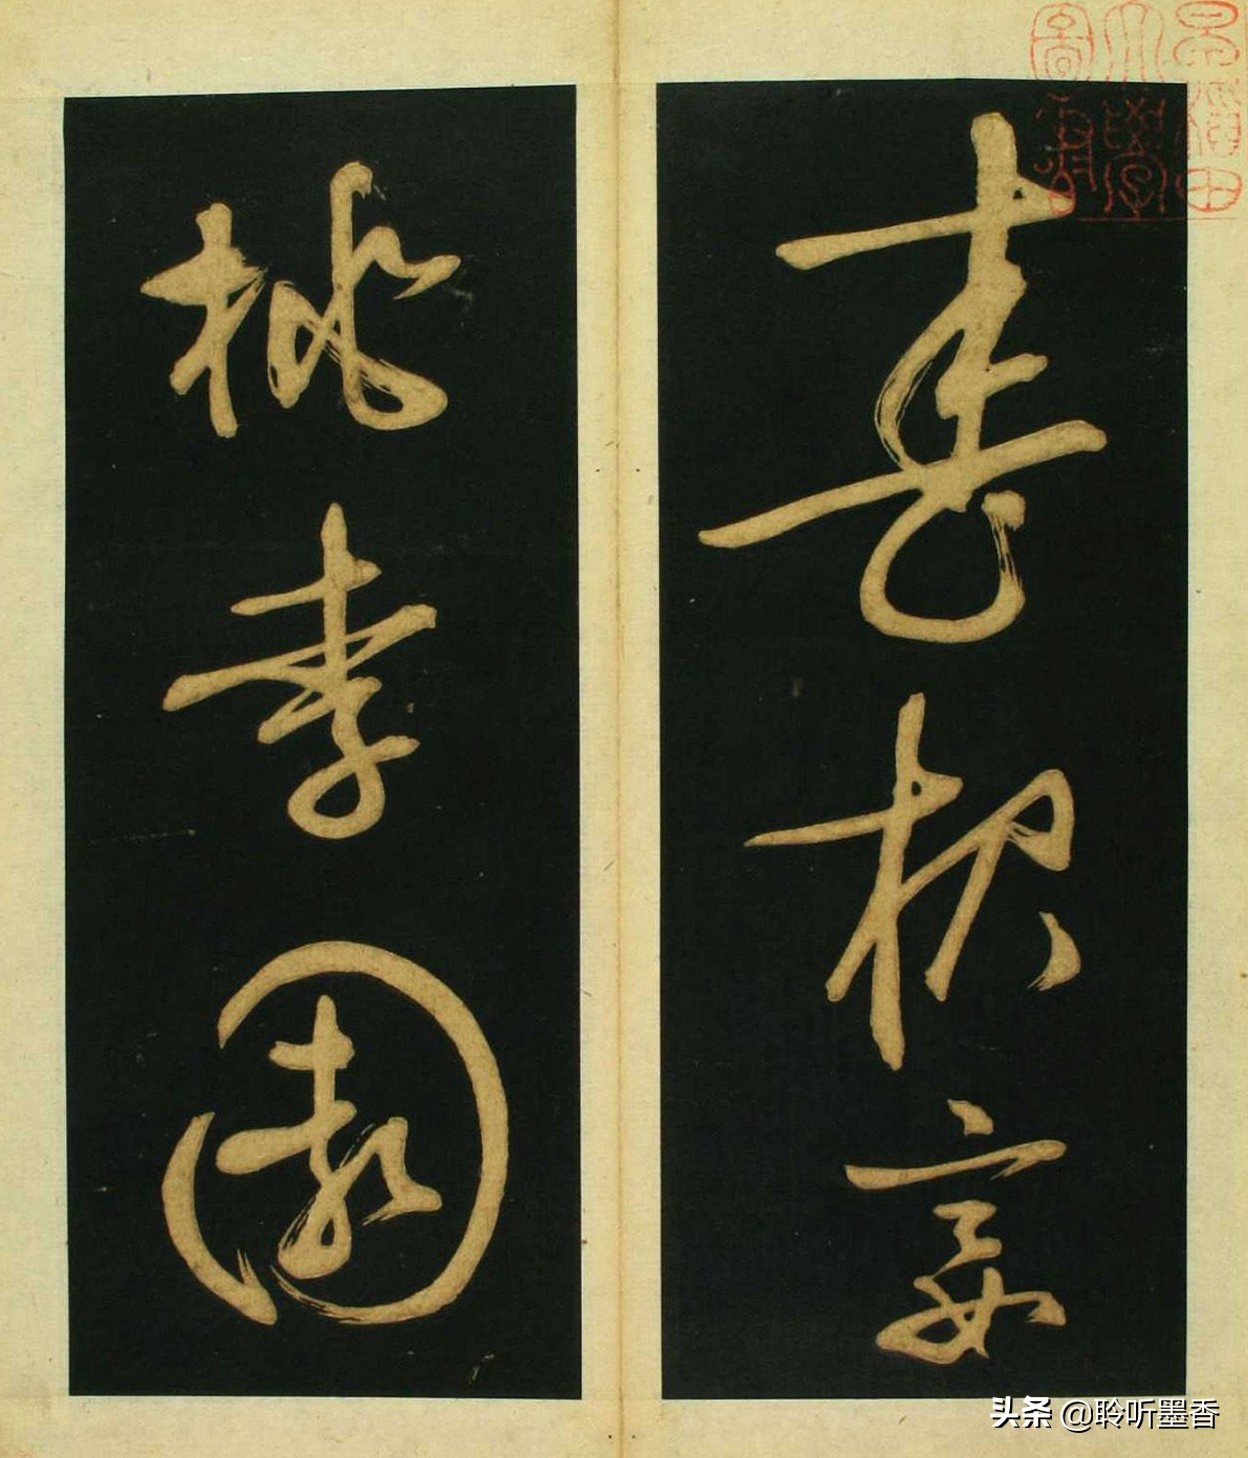 春夜宴
桃李園
头条 @聆听墨香